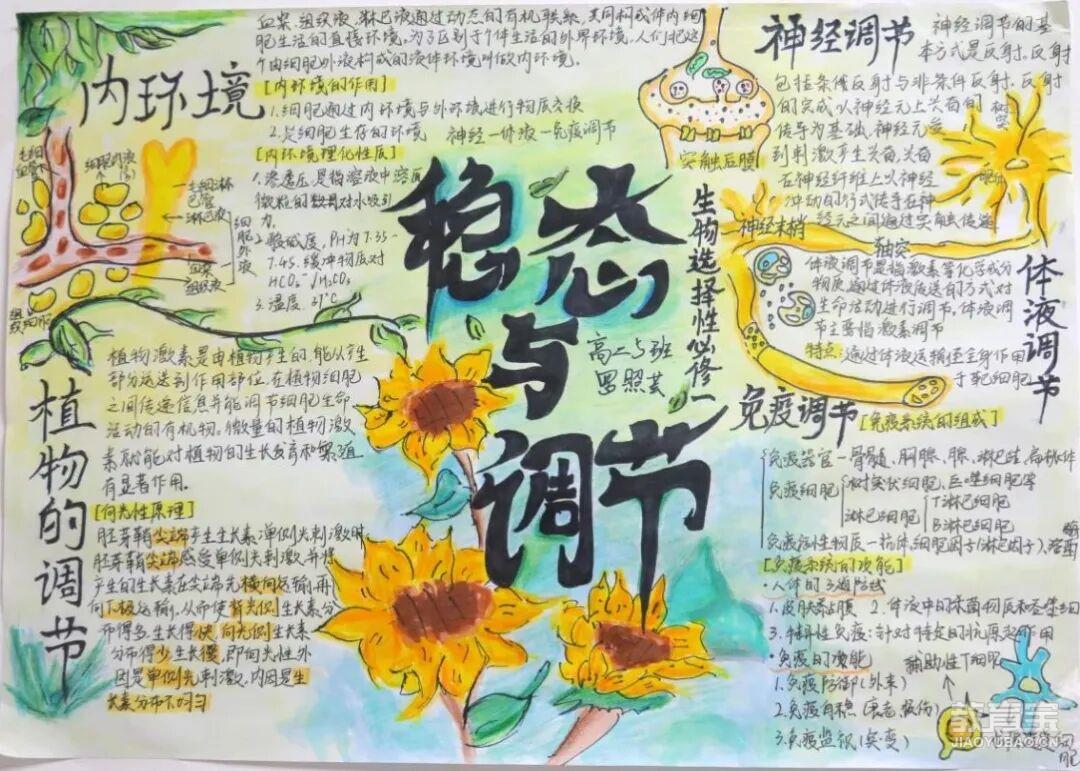 内环境
血浆、组织液、淋巴液通过动态的有机联系,共同构成体内细
胞生活的直接环境。为了区别于个体生活的外界环境,人们把这
个由细胞外液构成的液体环境叫做内环境。
[内环境的作用]
1.细胞通过内环境与外环境进行物质交换
2.是细胞生存的环境 神经—体液—免疫调节
[内环境理化性质]
1.渗透压,是指溶液中溶质
微粒的数目对水吸引
力.
2.酸碱度,PH为7.35-
7.45.缓冲物质对
HCO₃⁻/H₂CO₃
3.温度.37℃
毛细血管
细胞内液
毛细淋巴管
淋巴液
血浆
组织液
细胞外液
稳态与调节
生物选择性必修一
高二5班
罗照芸
神经调节
神经调节的基
本方式是反射,反射
包括条件反射与非条件反射,反射
的完成以神经元上兴奋的
传导为基础,神经元受
到刺激产生兴奋,兴奋
在神经纤维上以神经
冲动的形式传导在神
经元之间通过突触传递
突触后膜
树突
胞体
神经末梢
轴突
体液调节
体液调节是指激素等化学成分
物质,通过体液运送的方式对
生命活动进行调节,体液调
节主要指激素调节
特点:通过体液运输至全身作用
于靶细胞
植物的调节
植物激素是由植物产生的,能从产生
部分运送到作用部位,在植物细胞
之间传递信息并能调节细胞生命
活动的有机物。微量的植物激
素就能对植物的生长发育和繁殖
有显著作用。
[向光性原理]
胚芽鞘尖端产生生长素,单侧光刺激时
胚芽鞘尖端感受单侧光刺激,并将
产生的生长素在尖端先横向运输,再
向下极运输,从而使背光侧生长素分
布得多,生长得快,向光侧生长素
分布得少生长慢,即向光性外
因是单侧光刺激,内因是生
长素分布不均匀
免疫调节
[免疫系统的组成]
免疫器官—骨髓、胸腺、脾、淋巴结、扁桃体
免疫细胞 树突状细胞、巨噬细胞等
淋巴细胞 T淋巴细胞
B淋巴细胞
免疫活性物质—抗体、细胞因子(淋巴因子)、溶菌酶
[免疫系统的功能]
·人体的3道防线
1.皮肤、黏膜 2.体液中的杀菌物质和吞噬细
3.特异性免疫:针对特定的抗原起作用
·免疫的功能
1.免疫防御(外来)
2.免疫自稳(衰老、损伤)
3.免疫监视(突变)
辅助性T细胞
教育宝
JIAOYUBAO.CN